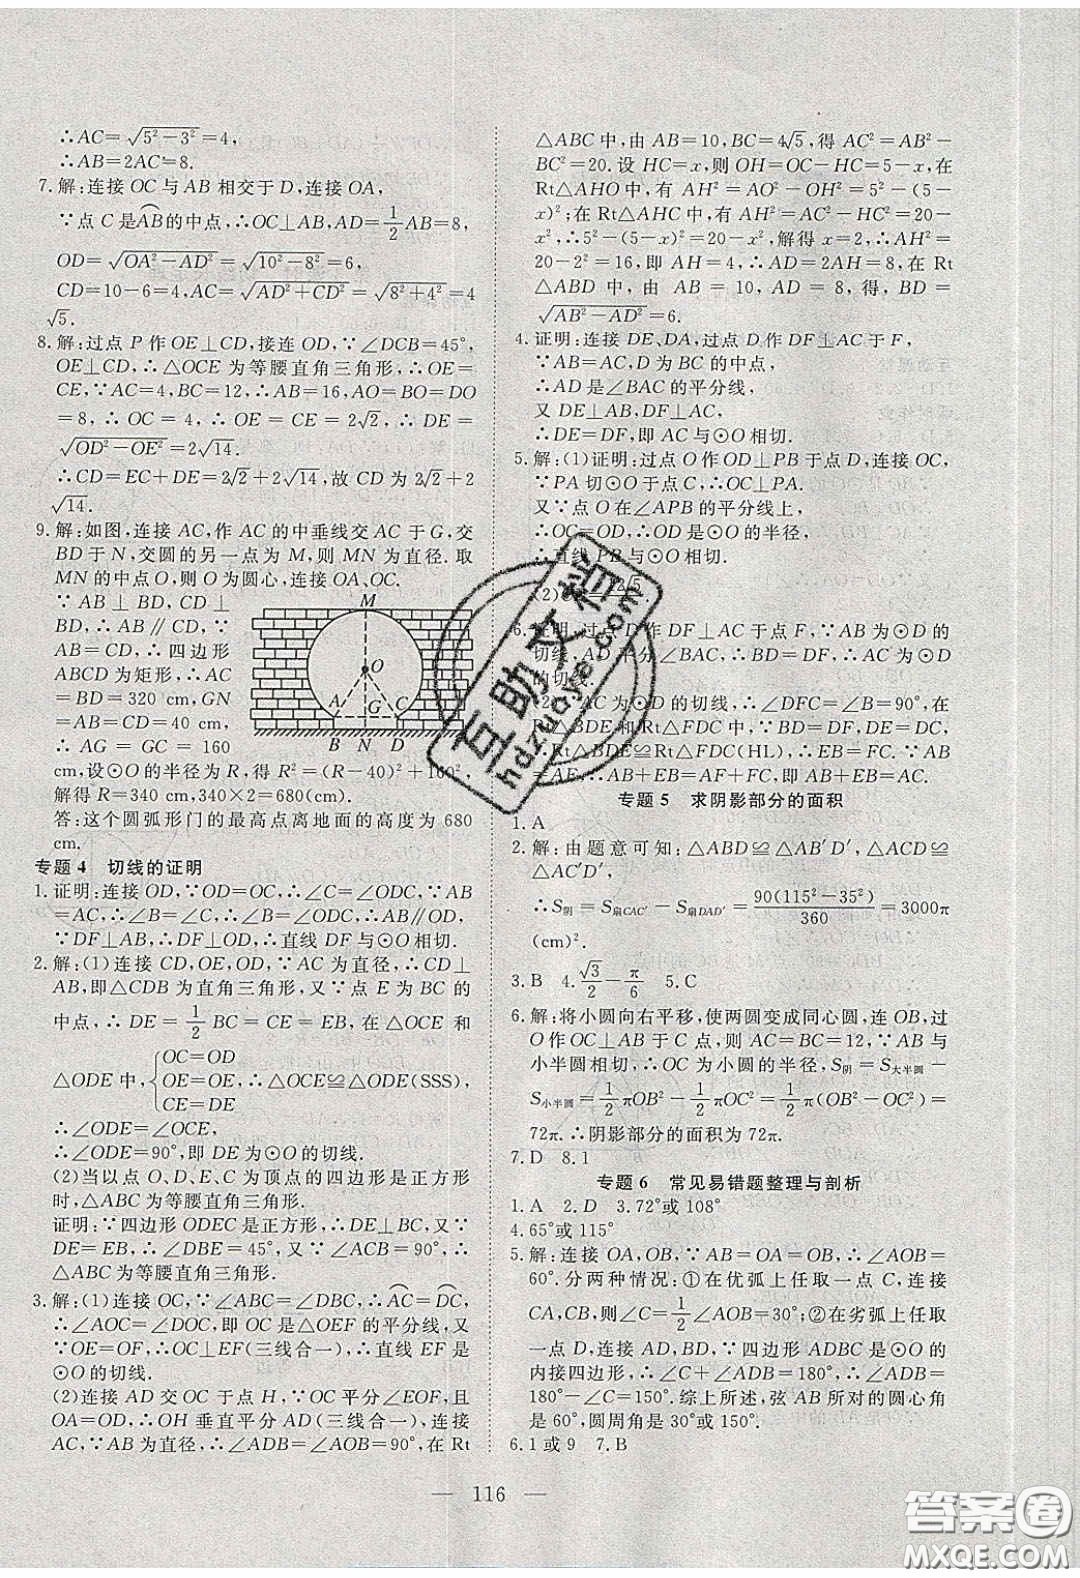 ∴AC=√(5²−3²)=4,
∴AB=2AC=8.
7.解:连接 OC 与 AB 相交于 D,连接 OA,
∵点 C 是AB的中点,∴OC⊥AB,AD=1/2 AB=8,
OD=√(OA²−AD²)=√(10²−8²)=6,
CD=10−6=4,AC=√(AD²+CD²)=√(8²+4²)=4
√5.
8.解:过点 P 作 OE⊥CD,接连 OD,∵∠DCB=45°,
OE⊥CD,∴△OCE 为等腰直角三角形,∴OE=
CE,∵AC=4,BC=12,∴AB=16,AO=BO=DO
=8,∴OC=4,∴OE=CE=2√2,∴DE=
√(OD²−OE²)=2√14.
∴CD=EC+DE=2√2+2√14,故 CD 为 2√2+2
√14.
9.解:如图,连接 AC,作 AC 的中垂线交 AC 于 G,交
BD 于 N,交圆的另一点为 M,则 MN 为直径.取
MN 的中点 O,则 O 为圆心,连接 OA、OC.
∵ AB ⊥ BD, CD ⊥
BD,∴AB∥CD,∵AB
=CD,∴四边形
ABCD 为矩形,∴AC
=BD=320 cm,GN
=AB=CD=40 cm,
∴ AG = GC = 160
cm,设⊙O 的半径为 R,得 R²=(R−40)²+160²,
解得 R=340 cm,340×2=680(cm).
答:这个圆弧形门的最高点离地面的高度为 680
cm.
M
O
A G C
B N D
专题 4 切线的证明
1.证明:连接 OD,∵OD=OC,∴∠C=∠ODC,∵AB
=AC,∴∠B=∠C,∴∠B=∠ODC,∴AB∥OD,
∵DF⊥AB,∴DF⊥OD,∴直线 DF 与⊙O 相切.
2.解:(1)连接 CD,OE,OD,∵AC 为直径,∴CD⊥
AB,即△CDB 为直角三角形,∵点 E 为 BC 的
中点,∴DE=1/2 BC=CE=EB,在△OCE 和
△ODE 中,{OC=OD
OE=OE,∴△OCE≌△ODE(SSS),
CE=DE
∴∠ODE=∠OCE,
∴∠ODE=90°,即 DE 为⊙O 的切线.
(2)当以点 O、D、E、C 为顶点的四边形是正方形
时,△ABC 为等腰直角三角形.
证明:∵四边形 ODEC 是正方形,∴DE⊥BC,又∵
DE=EB,∴∠DBE=45°,又∵∠ACB=90°,∴
△ABC 为等腰直角三角形.
3.解:(1)连接 OC,∵∠ABC=∠DBC,∴AC=DC,
∴∠AOC=∠DOC,即 OC 是△OEF 的平分线,又
∵OE=OF,∴OC⊥EF(三线合一),∴直线 EF 是
⊙O 的切线.
(2)连接 AD 交 OC 于点 H,∵OC 平分∠EOF,且
OA=OD,∴OH 垂直平分 AD(三线合一),连接
AC,∵AB 为直径,∴∠ADB=∠AOB=90°,在 Rt
△ABC 中,由 AB=10,BC=4√5,得 AC²=AB²−
BC²=20.设 HC=x,则 OH=OC−HC=5−x,在
Rt△AHO 中,有 AH²=AO²−OH²=5²−(5−
x)²;在 Rt△AHC 中,有 AH²=AC²−HC²=20−
x²,∴5²−(5−x)²=20−x²,解得 x=2,∴AH²=
20−2²=16,即 AH=4,∴AD=2AH=8,在 Rt
△ABD 中,由 AB=10,AD=8,得,BD=
√(AB²−AD²)=6.
4.证明:连接 DE、DA,过点 D 作 DF⊥AC 于 F,
∵AB=AC,D 为 BC 的中点,
∴AD 是∠BAC 的平分线,
又 DE⊥AB,DF⊥AC,
∴DE=DF,即 AC 与⊙O 相切.
5.解:(1)证明:过点 O 作 OD⊥PB 于点 D,连接 OC,
∵PA 切⊙O 于点 C,∴OC⊥PA.
又∵点 O 在∠APB 的平分线上,
∴OC=OD,∴OD 是⊙O 的半径,
∴直线 PB 与⊙O 相切.
6.证明:过点 D 作 DF⊥AC 于点 F,∵AB 为⊙D 的
切线,AD 平分∠BAC,∴BD=DF,∴AC 为⊙D
的切线.
(2)∵AC 为⊙D 的切线,∴∠DFC=∠B=90°,在
Rt△BDE 和 Rt△FDC 中,∵BD=DF,DE=DC,
∴Rt△BDE≌Rt△FDC(HL),∴EB=FC.∵AB
=AF,∴AB+EB=AF+FC,即 AB+EB=AC.
专题 5 求阴影部分的面积
1.A
2.解:由题意可知:△ABD≌△AB′D′,△ACD≌
△AC′D′,
∴S阴=S扇CAC′−S扇DAD′=90(115²−35²)/360=3000π
(cm)².
3.B 4.√3/2−π/6 5.C
6.解:将小圆向右平移,使两圆变成同心圆,连 OB,过
O 作 OC⊥AB 于 C 点,则 AC=BC=12,∵AB 与
小半圆相切,∴OC 为小圆的半径,S阴=S大半圆−
S小半圆=1/2πOB²−1/2πOC²=1/2π(OB²−OC²)=
72π.∴阴影部分的面积为 72π.
7.D 8.1
专题 6 常见易错题整理与剖析
1.A 2.D 3.72°或 108°
4.65°或 115°
5.解:连接 OA,OB,∵AB=OA=OB,∴∠AOB=
60°.分两种情况:①在优弧上任取一点 C,连接
CA,CB,则∠C=1/2∠AOB=30°;②在劣弧上任取
一点 D,连接 AD、BD,∵四边形 ADBC 是⊙O 的
内接四边形,∴∠C+∠ADB=180°,∴∠ADB=
180°−∠C=150°.综上所述,弦 AB 所对的圆心角
是 60°,圆周角是 30°或 150°.
6.1 或 9 7.B
— 116 —
互助文档
hdzuoye.com
答案圈
MXQE.COM